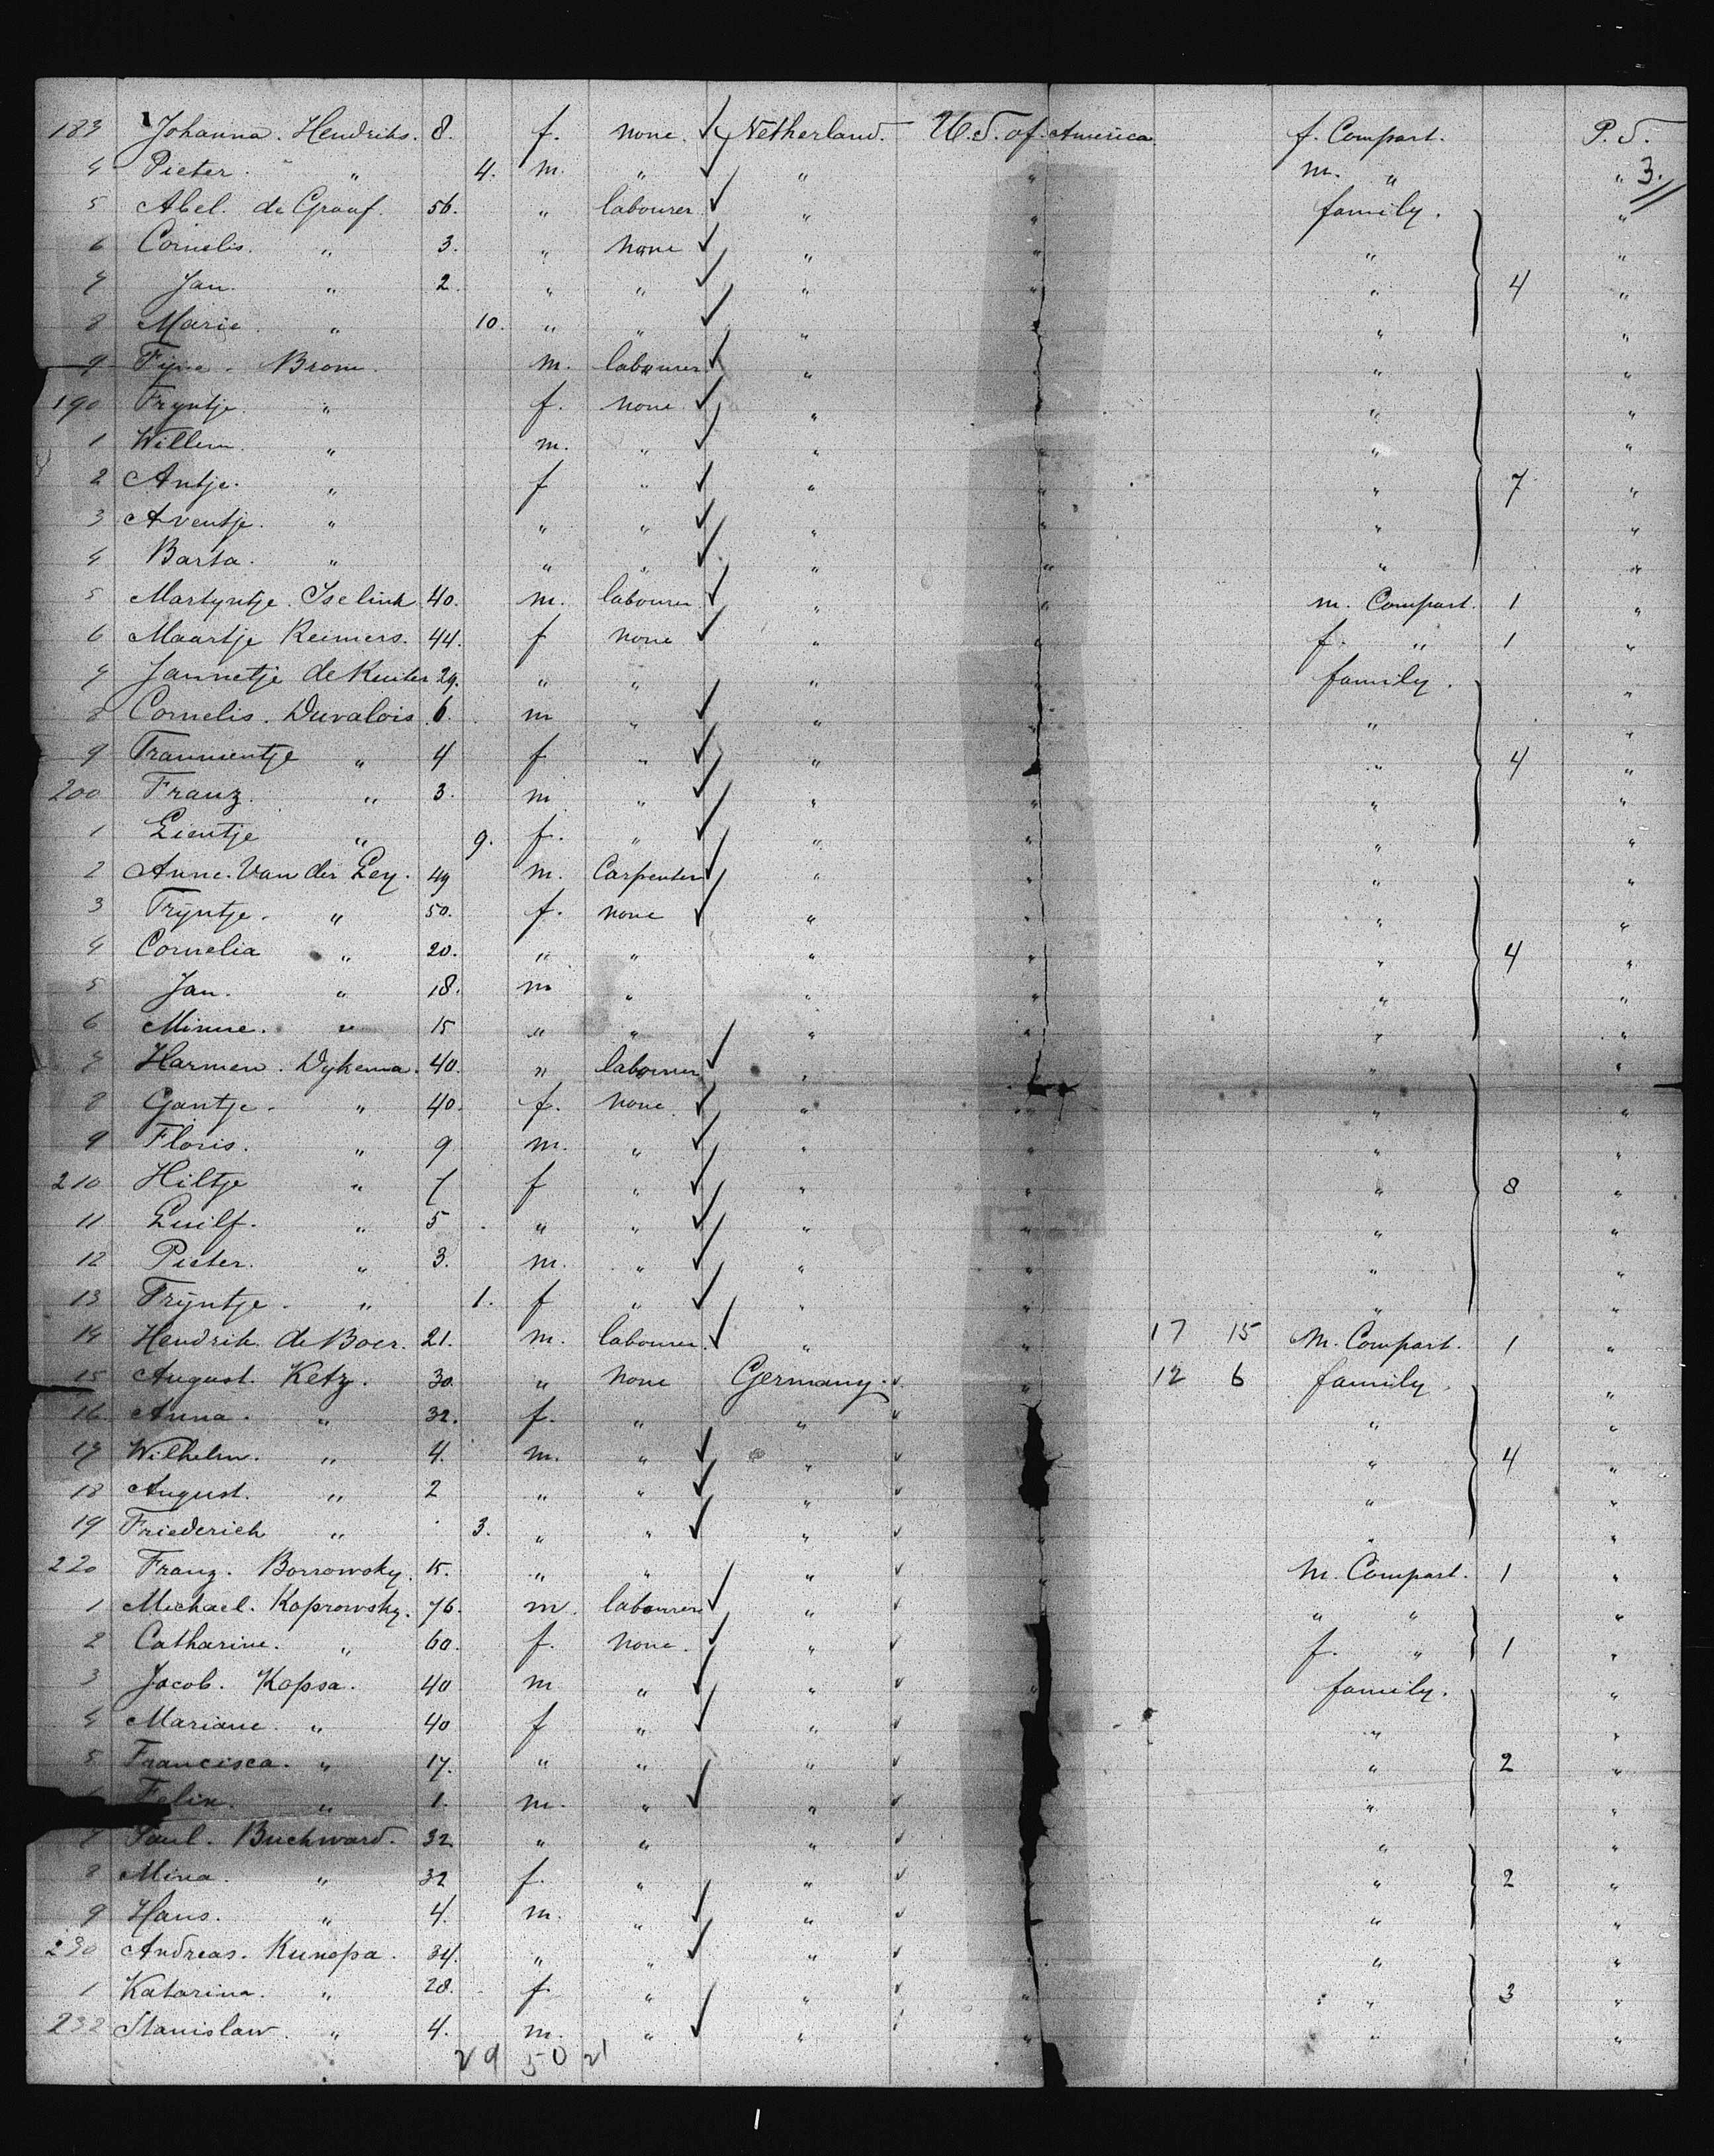 3.
183 Johanna. Hendriks. 8. f. none. Netherland. U.S. of America f. Compart. P.S.
4 Pieter. " 4. m. " " " m. " "
5 Abel. de Graaf. 56. " labourer " " family. "
6 Cornelis. " 3. " none " " " "
7 Jan. " 2. " " " " " 4 "
8 Marie. " 10. " " " " " "
9 Brom. m. labourer " " " "
190 Tryntje. " f. none. " " " "
1 Willem. " m. " " " " "
2 Antje. " f " " " " 7 "
3 Aventje. " " " " " " "
4 Barta. " " " " " " "
5 Martyntje. Iselink 40. m. labourer " " m. Compart. 1 "
6 Maartje Reimers. 44. f none " " f. " 1 "
7 Jannetje de Ruiter 29. " " " " family. "
8 Cornelis. Duvalois. 6. m " " " " "
9 " 4 f " " " " 4 "
200 Franz. " 3. m " " " " "
1 Lientje " 9. f. " " " " "
2 Anne. Van der Ley. 49 m. Carpenter " " " "
3 Trÿntje. " 50. f. none " " " "
4 Cornelia " 20. " " " " " 4 "
5 Jan. " 18. m " " " " "
6 Minne. " 15 " " " " " "
7 Harmen. Dykema. 40. " labourer " " " "
8 Gantje. " 40. f. none. " " " "
9 Floris. " 9 m. " " " " "
210 Hiltje " 7 f " " " " 8 "
11 " 5 " " " " " "
12 Pieter. " 3. m. " " " " "
13 Trÿntje. " 1. f " " " " "
14 Hendrik de Boer. 21. m. labourer. " " 17 15 M. Compart. 1 "
15 August. Ketz. 30. " none Germany. " 12 6 family "
16. Anna. " 32. f. " " " " "
17 Wilhelm. " 4. m. " " " " 4 "
18 August. " 2 " " " " " "
19 Friederich " 3. " " " " " "
220 Franz. Borrowsky. 15. " " " " M. Compart. 1 "
1 Michael. Koprowsky. 76. m. labourer " " " " "
2 Catharine. " 60. f. none. " " f. " 1 "
3 Jacob. Kopsa. 40 m " " " family. "
4 Mariane. " 40 f " " " " "
5 Francisca. " 17. " " " " " 2 "
Felix. " 1. m. " " " " "
7 Paul. Buchward. 32 " " " " " "
8 Mina. " 32 f. " " " " 2 "
9 Hans. " 4. m. " " " " "
230 Andreas. Kunopa. 34. " " " " " "
1 Katarina. " 28. f " " " " 3 "
232 Stanislaw. " 4. m. " " " " "
29 50 21
1